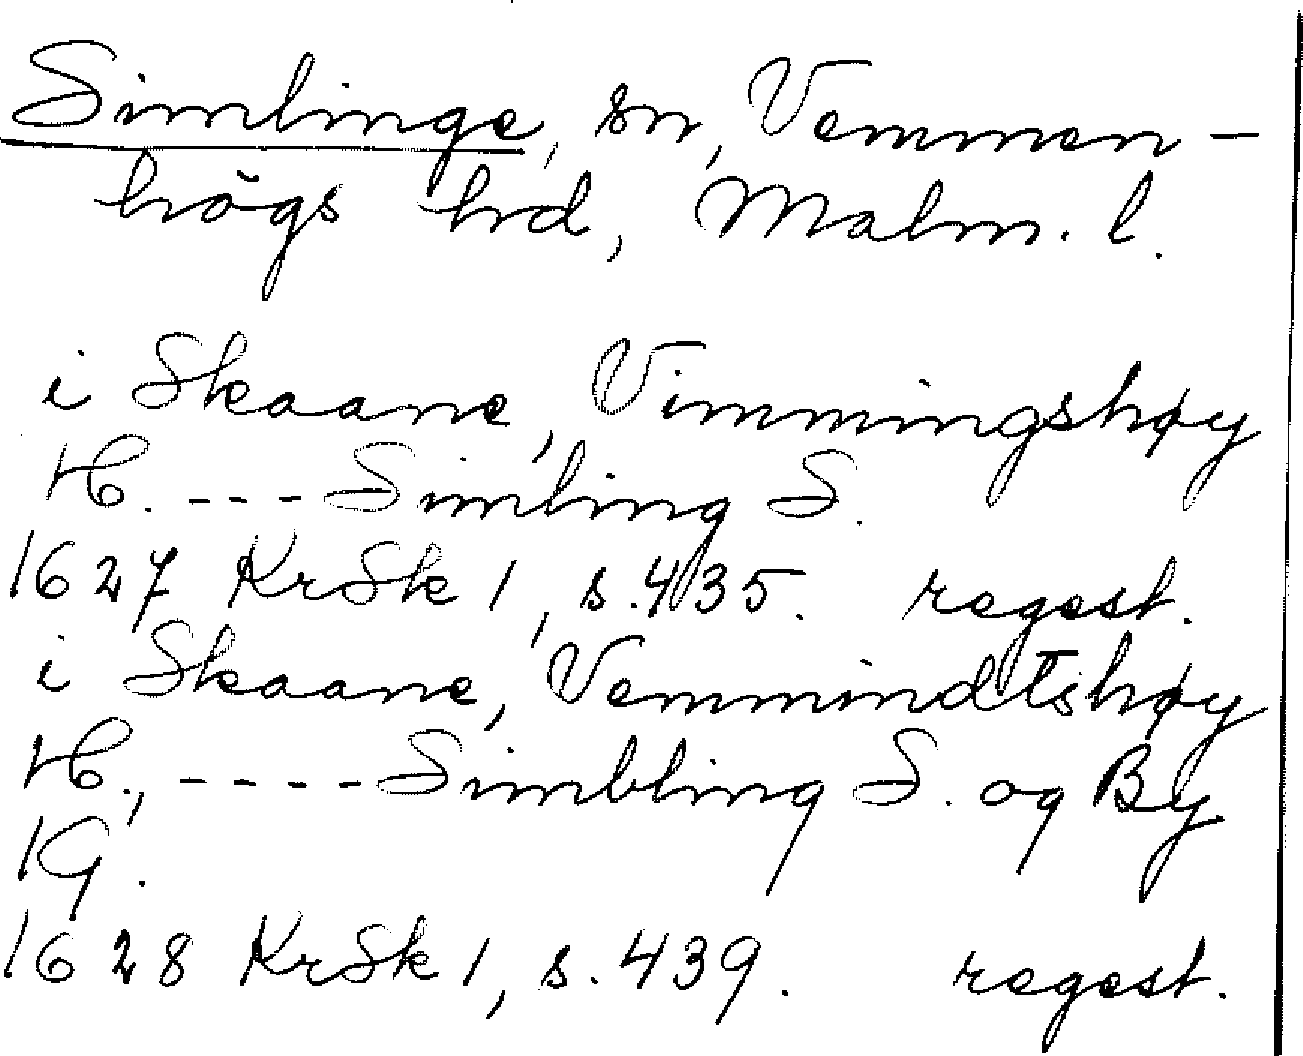 Simlinge, sn, Vemmen-
högs hd, Malm. l.
i Skaane, Vimmingshøy
H. --- Simling S.
1627 KrSk 1, s. 435. regest.
i Skaane, Vemmindtshøy
H., ---- Simbling S. og By
1 G.
1628 KrSk 1, s. 439. regest.